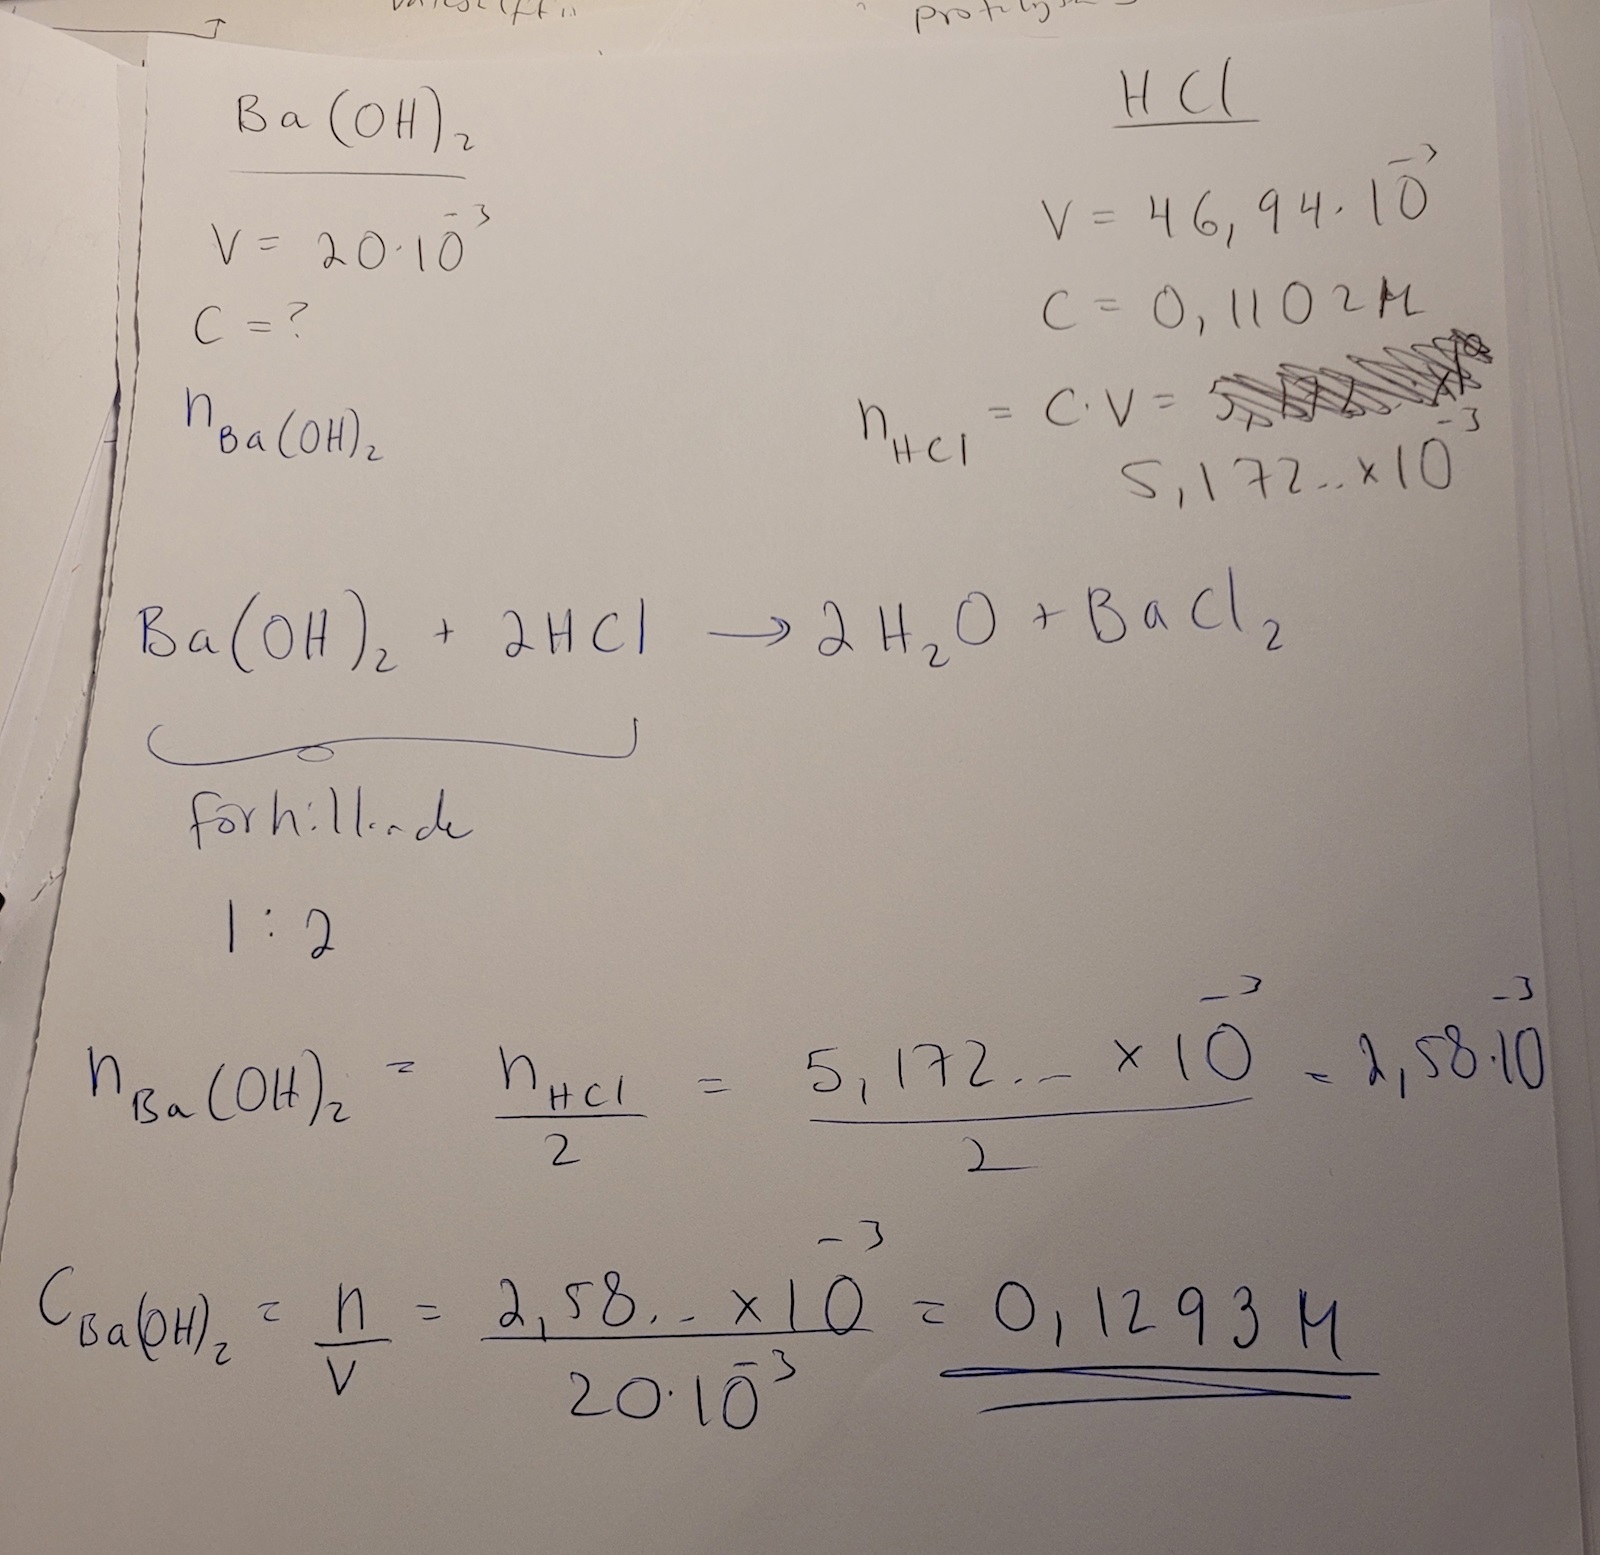 Ba(OH)₂
V = 20·10⁻³
C = ?
n Ba(OH)₂
HCl
V = 46,94·10⁻³
C = 0,1102 M
n HCl = C·V =
5,172..×10⁻³
Ba(OH)₂ + 2HCl → 2H₂O + BaCl₂
förhållande
1:2
n Ba(OH)₂ = n HCl / 2 = 5,172..×10⁻³ / 2 = 2,58·10⁻³
C Ba(OH)₂ = n / V = 2,58..×10⁻³ / 20·10⁻³ = 0,1293 M